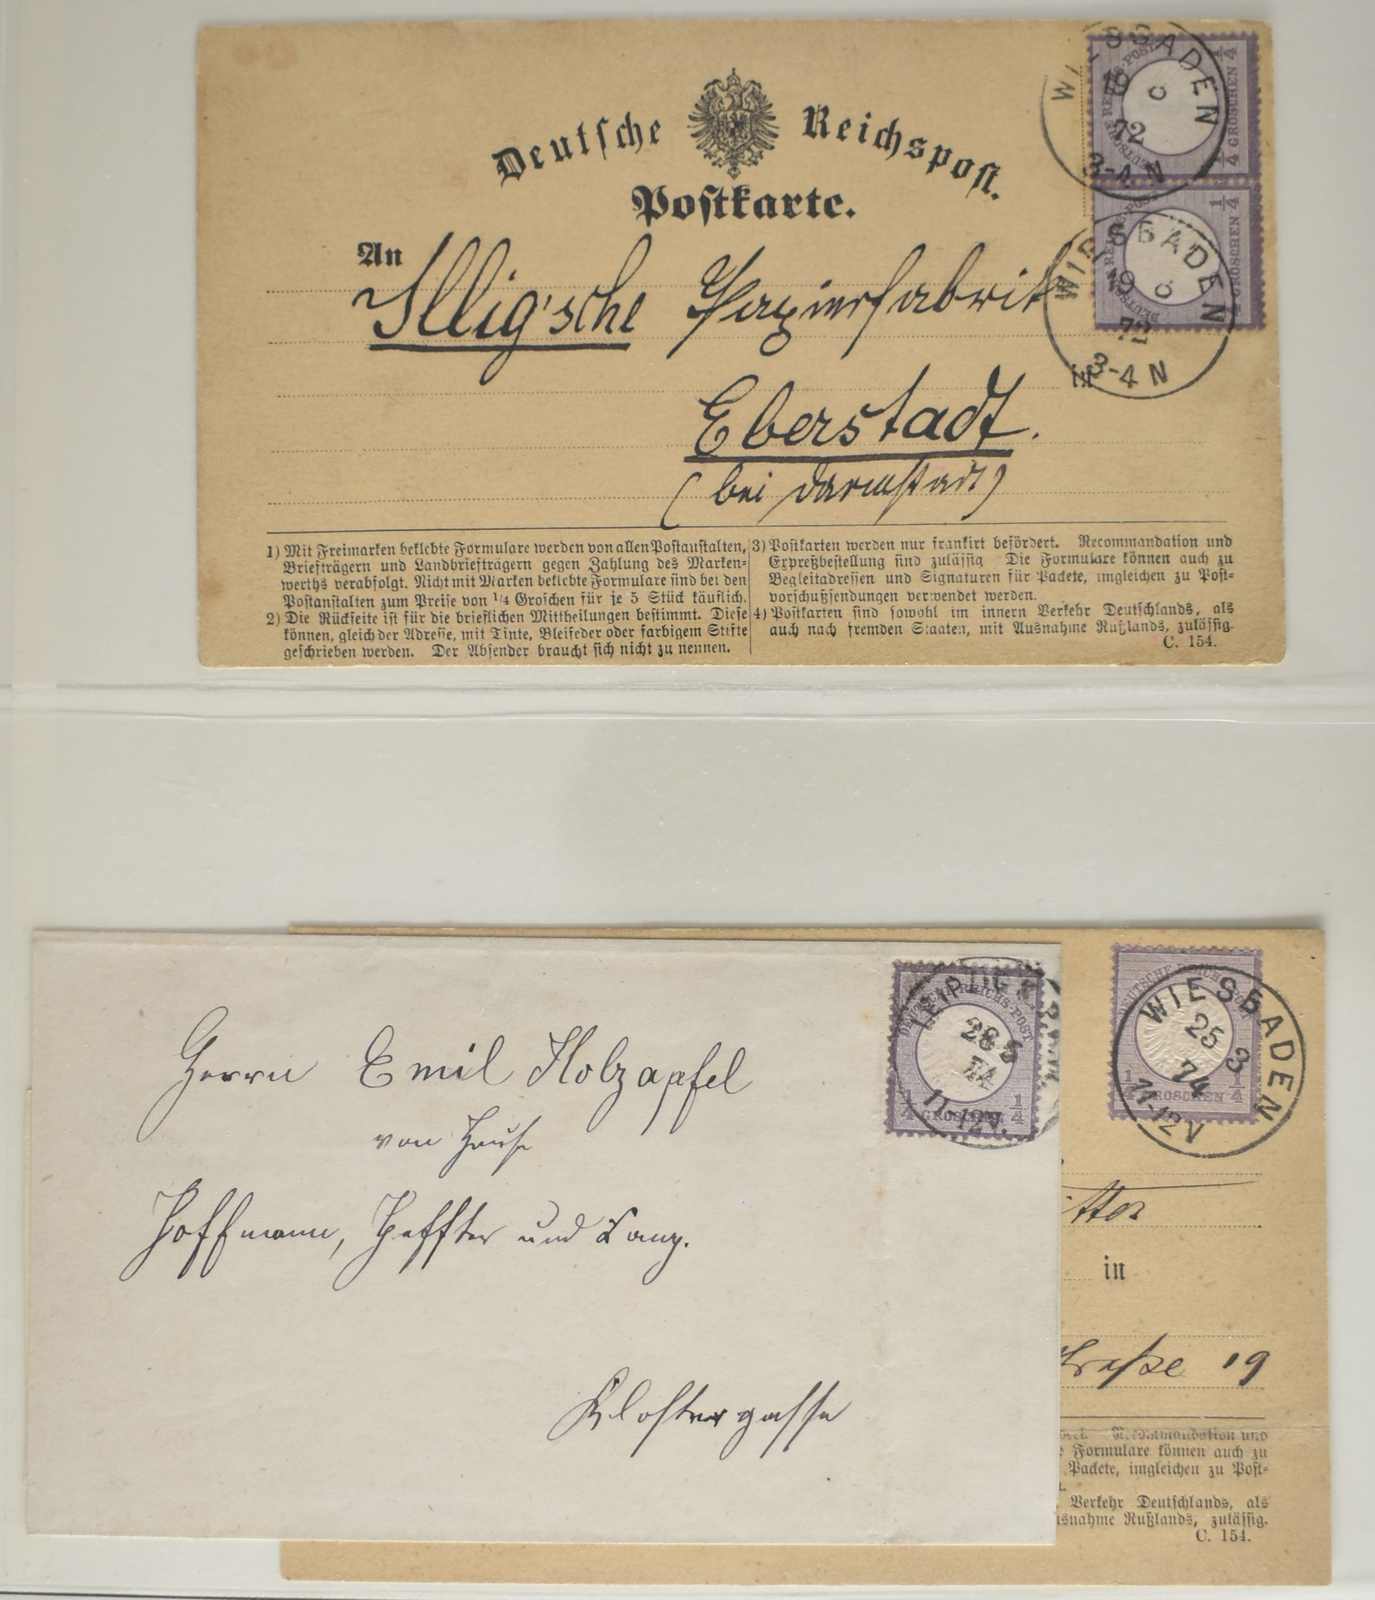 Deutsche Reichspost.
Postkarte.
WIESBADEN
72
3-4 N
DEUTSCHE REICHS-POST
1/4 GROSCHEN 1/4
WIESBADEN
9 8
72
3-4 N
DEUTSCHE REICHS-POST
1/4 GROSCHEN 1/4
An Illig'sche Papierfabrik
in
Eberstadt.
(bei Darmstadt)
1) Mit Freimarken beklebte Formulare werden von allen Postanstalten,
Briefträgern und Landbriefträgern gegen Zahlung des Marken-
werths verabfolgt. Nicht mit Marken beklebte Formulare sind bei den
Postanstalten zum Preise von 1/4 Groschen für je 5 Stück käuflich.
2) Die Rückseite ist für die brieflichen Mittheilungen bestimmt. Diese
können, gleich der Adresse, mit Tinte, Bleifeder oder farbigem Stifte
geschrieben werden. Der Absender braucht sich nicht zu nennen.
3) Postkarten werden nur frankirt befördert. Recommandation und
Expreßbestellung sind zulässig Die Formulare können auch zu
Begleitadressen und Signaturen für Packete, imgleichen zu Post-
vorschußsendungen verwendet werden.
4) Postkarten sind sowohl im innern Verkehr Deutschlands, als
auch nach fremden Staaten, mit Ausnahme Rußlands, zulässig.
C. 154.
DEUTSCHE REICHS-POST
1/4 GROSCHEN 1/4
LEIPZIG
28 5
74
11-12 V.
Herrn Emil Holzapfel
von Hause
Hoffmann, Heffter und Comp.
Klostergasse
DEUTSCHE REICHS-POST
1/4 GROSCHEN 1/4
WIESBADEN
25 3
74
11-12 V
itter
in
straße 19
Recommandation und
Formulare können auch zu
Packete, imgleichen zu Post-
Verkehr Deutschlands, als
usnahme Rußlands, zulässig.
C. 154.